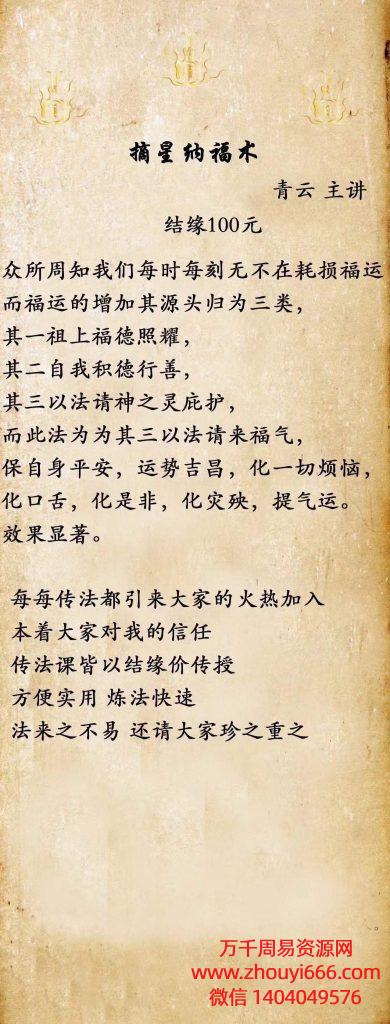 摘星纳福术
青云 主讲
结缘100元
众所周知我们每时每刻无不在耗损福运
而福运的增加其源头归为三类，
其一祖上福德照耀，
其二自我积德行善，
其三以法请神之灵庇护，
而此法为为其三以法请来福气，
保自身平安，运势吉昌，化一切烦恼，
化口舌，化是非，化灾殃，提气运。
效果显著。
每每传法都引来大家的火热加入
本着大家对我的信任
传法课皆以结缘价传授
方便实用 炼法快速
法来之不易 还请大家珍之重之
万千周易资源网
www.zhouyi666.com
微信 1404049576